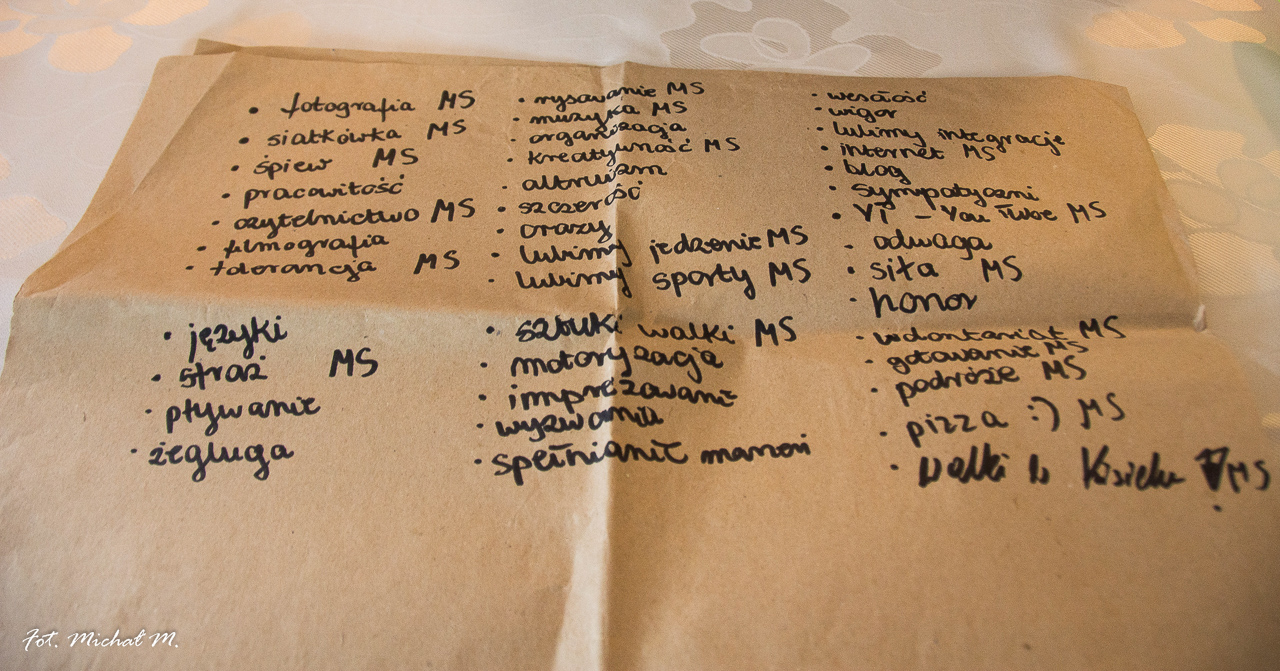 • fotografia MS
• siatkówka MS
• śpiew MS
• pracowitość
• czytelnictwo MS
• filmografia
• tolerancja MS
• języki
• straż MS
• pływanie
• żegluga
• rysowanie MS
• muzyka MS
• organizacja
• kreatywność MS
• altruizm
• szczerość
• orazy
• lubimy jedzenie MS
• lubimy sporty MS
• sztuki walki MS
• motoryzacja
• imprezowanie
• wyzwania
• spełnianie marzeń
• wesołość
• wigor
• lubimy integracje
• internet MS
• blog
• sympatyczni
• YT - You Tube MS
• odwaga
• siła MS
• honor
• wolontariat MS
• gotowanie MS
• podróże MS
• pizza :) MS
• walki w Kisielu MS
Fot. Michał M.